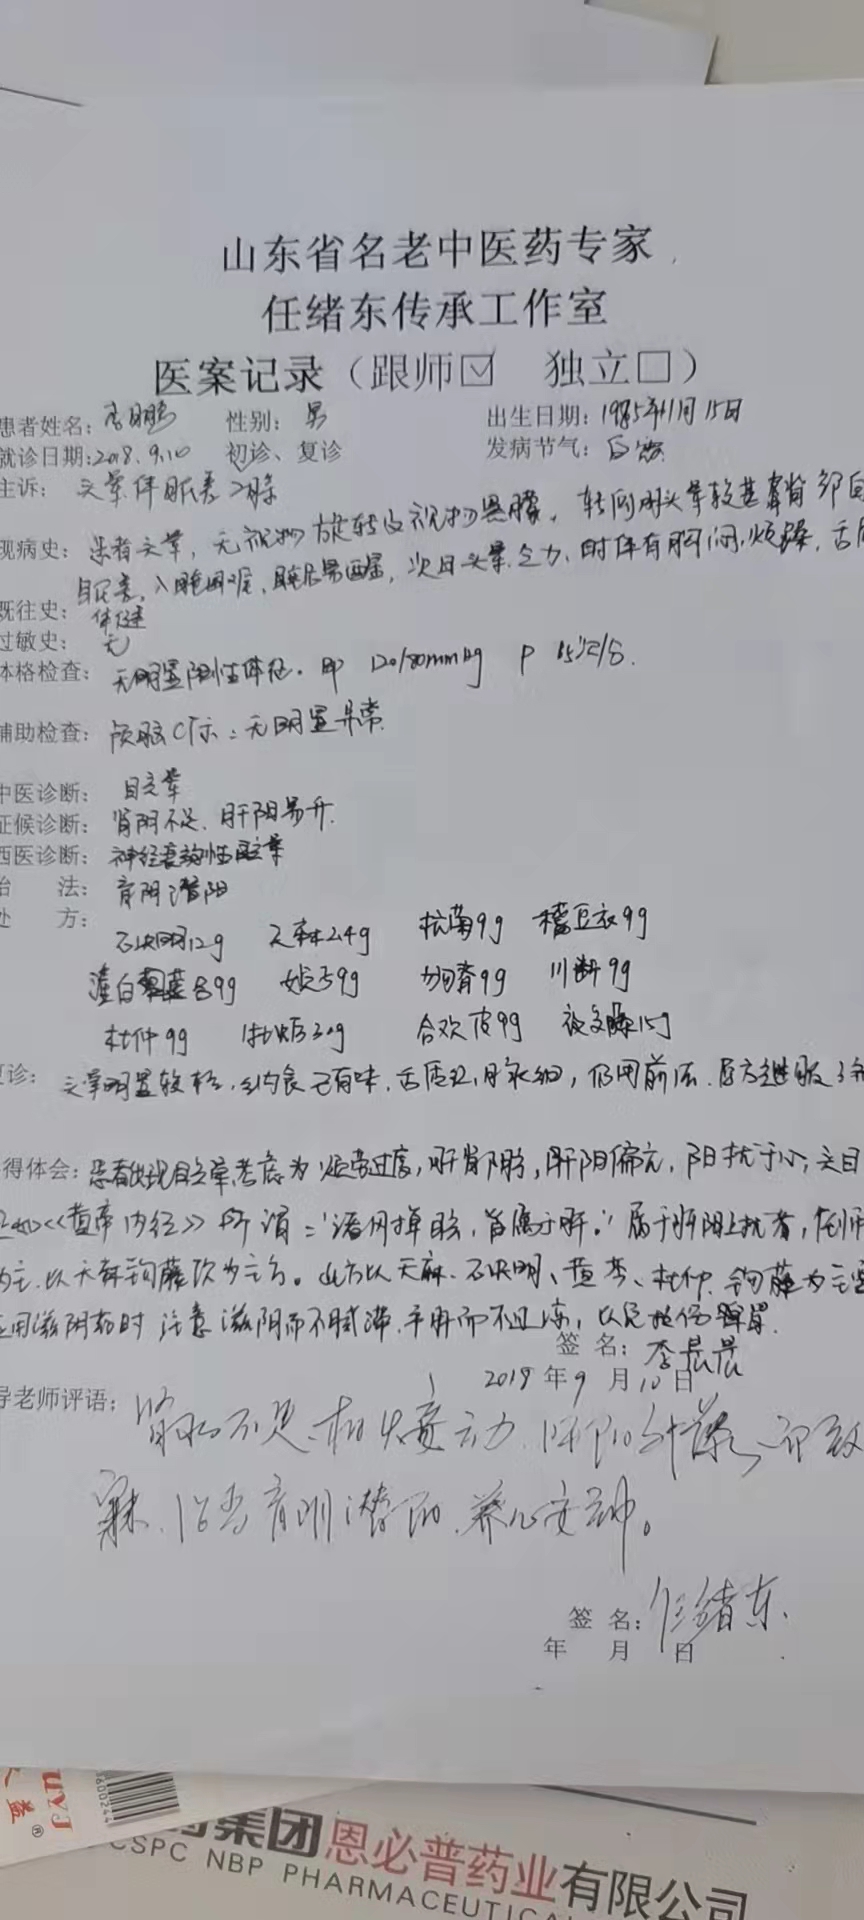 山东省名老中医药专家
任绪东传承工作室
医案记录（跟师☑ 独立□）
患者姓名： 性别：男 出生日期：1985年11月15日
就诊日期：2018.9.10 初诊、复诊 发病节气：白露
主诉：头晕伴眠差2月余
现病史：患者头晕，无视物旋转及视物黑矇，转侧时头晕较甚
眠差，入睡困难，睡后易醒，次日头晕乏力，时伴有胸闷，烦躁，舌质
既往史：体健
过敏史：无
体格检查：无明显阳性体征。BP 120/80mmHg P 85次/分.
辅助检查：颅脑CT示：无明显异常.
中医诊断：目眩晕
证候诊断：肾阴不足，肝阳易升.
西医诊断：神经衰弱性眩晕
治 法：育阴潜阳
处 方：
石决明12g 天麻24g 杭菊9g 穭豆衣9g
潼白蒺藜各9g 女贞子9g 狗脊9g 川断9g
杜仲9g 牡蛎30g 合欢皮9g 夜交藤15g
复诊：头晕明显较轻，纳食已有味，舌质红，脉弦细，仍用前法，原方继服3剂
得体会：患者出现目眩晕，考虑为烦劳过度，肝肾阴亏，肝阳偏亢，阳扰于心，头目
《黄帝内经》所谓："诸风掉眩，皆属于肝。"属于肝阳上扰者，
为主，以天麻钩藤饮为主方。此方以天麻、石决明、黄芩、杜仲、钩藤为主
应用滋阴药时注意滋阴而不腻滞，平肝而不过凉，以免损伤脾胃.
签 名：李晨晨
2018年9月10日
导老师评语：肾水不足，相火妄动，肝阳升
寐，治当育阴潜阳，养心安神。
签 名：任绪东
年 月 日
CSPC NBP PHARMACEUTICAL
集团恩必普药业有限公司